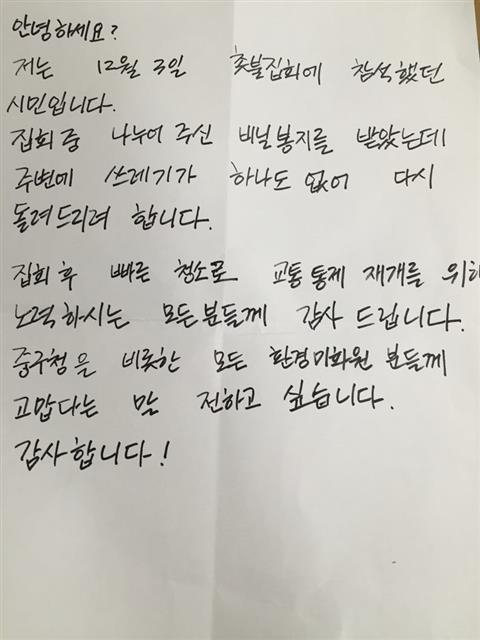 안녕하세요?
저는 12월 3일 촛불집회에 참석했던
시민입니다.
집회 중 나누어 주신 비닐봉지를 받았는데
주변에 쓰레기가 하나도 없어 다시
돌려드리려 합니다.
집회 후 빠른 청소로 교통 통제 재개를 위해
노력하시는 모든분들께 감사 드립니다.
중구청을 비롯한 모든 환경미화원 분들께
고맙다는 말 전하고 싶습니다.
감사합니다!